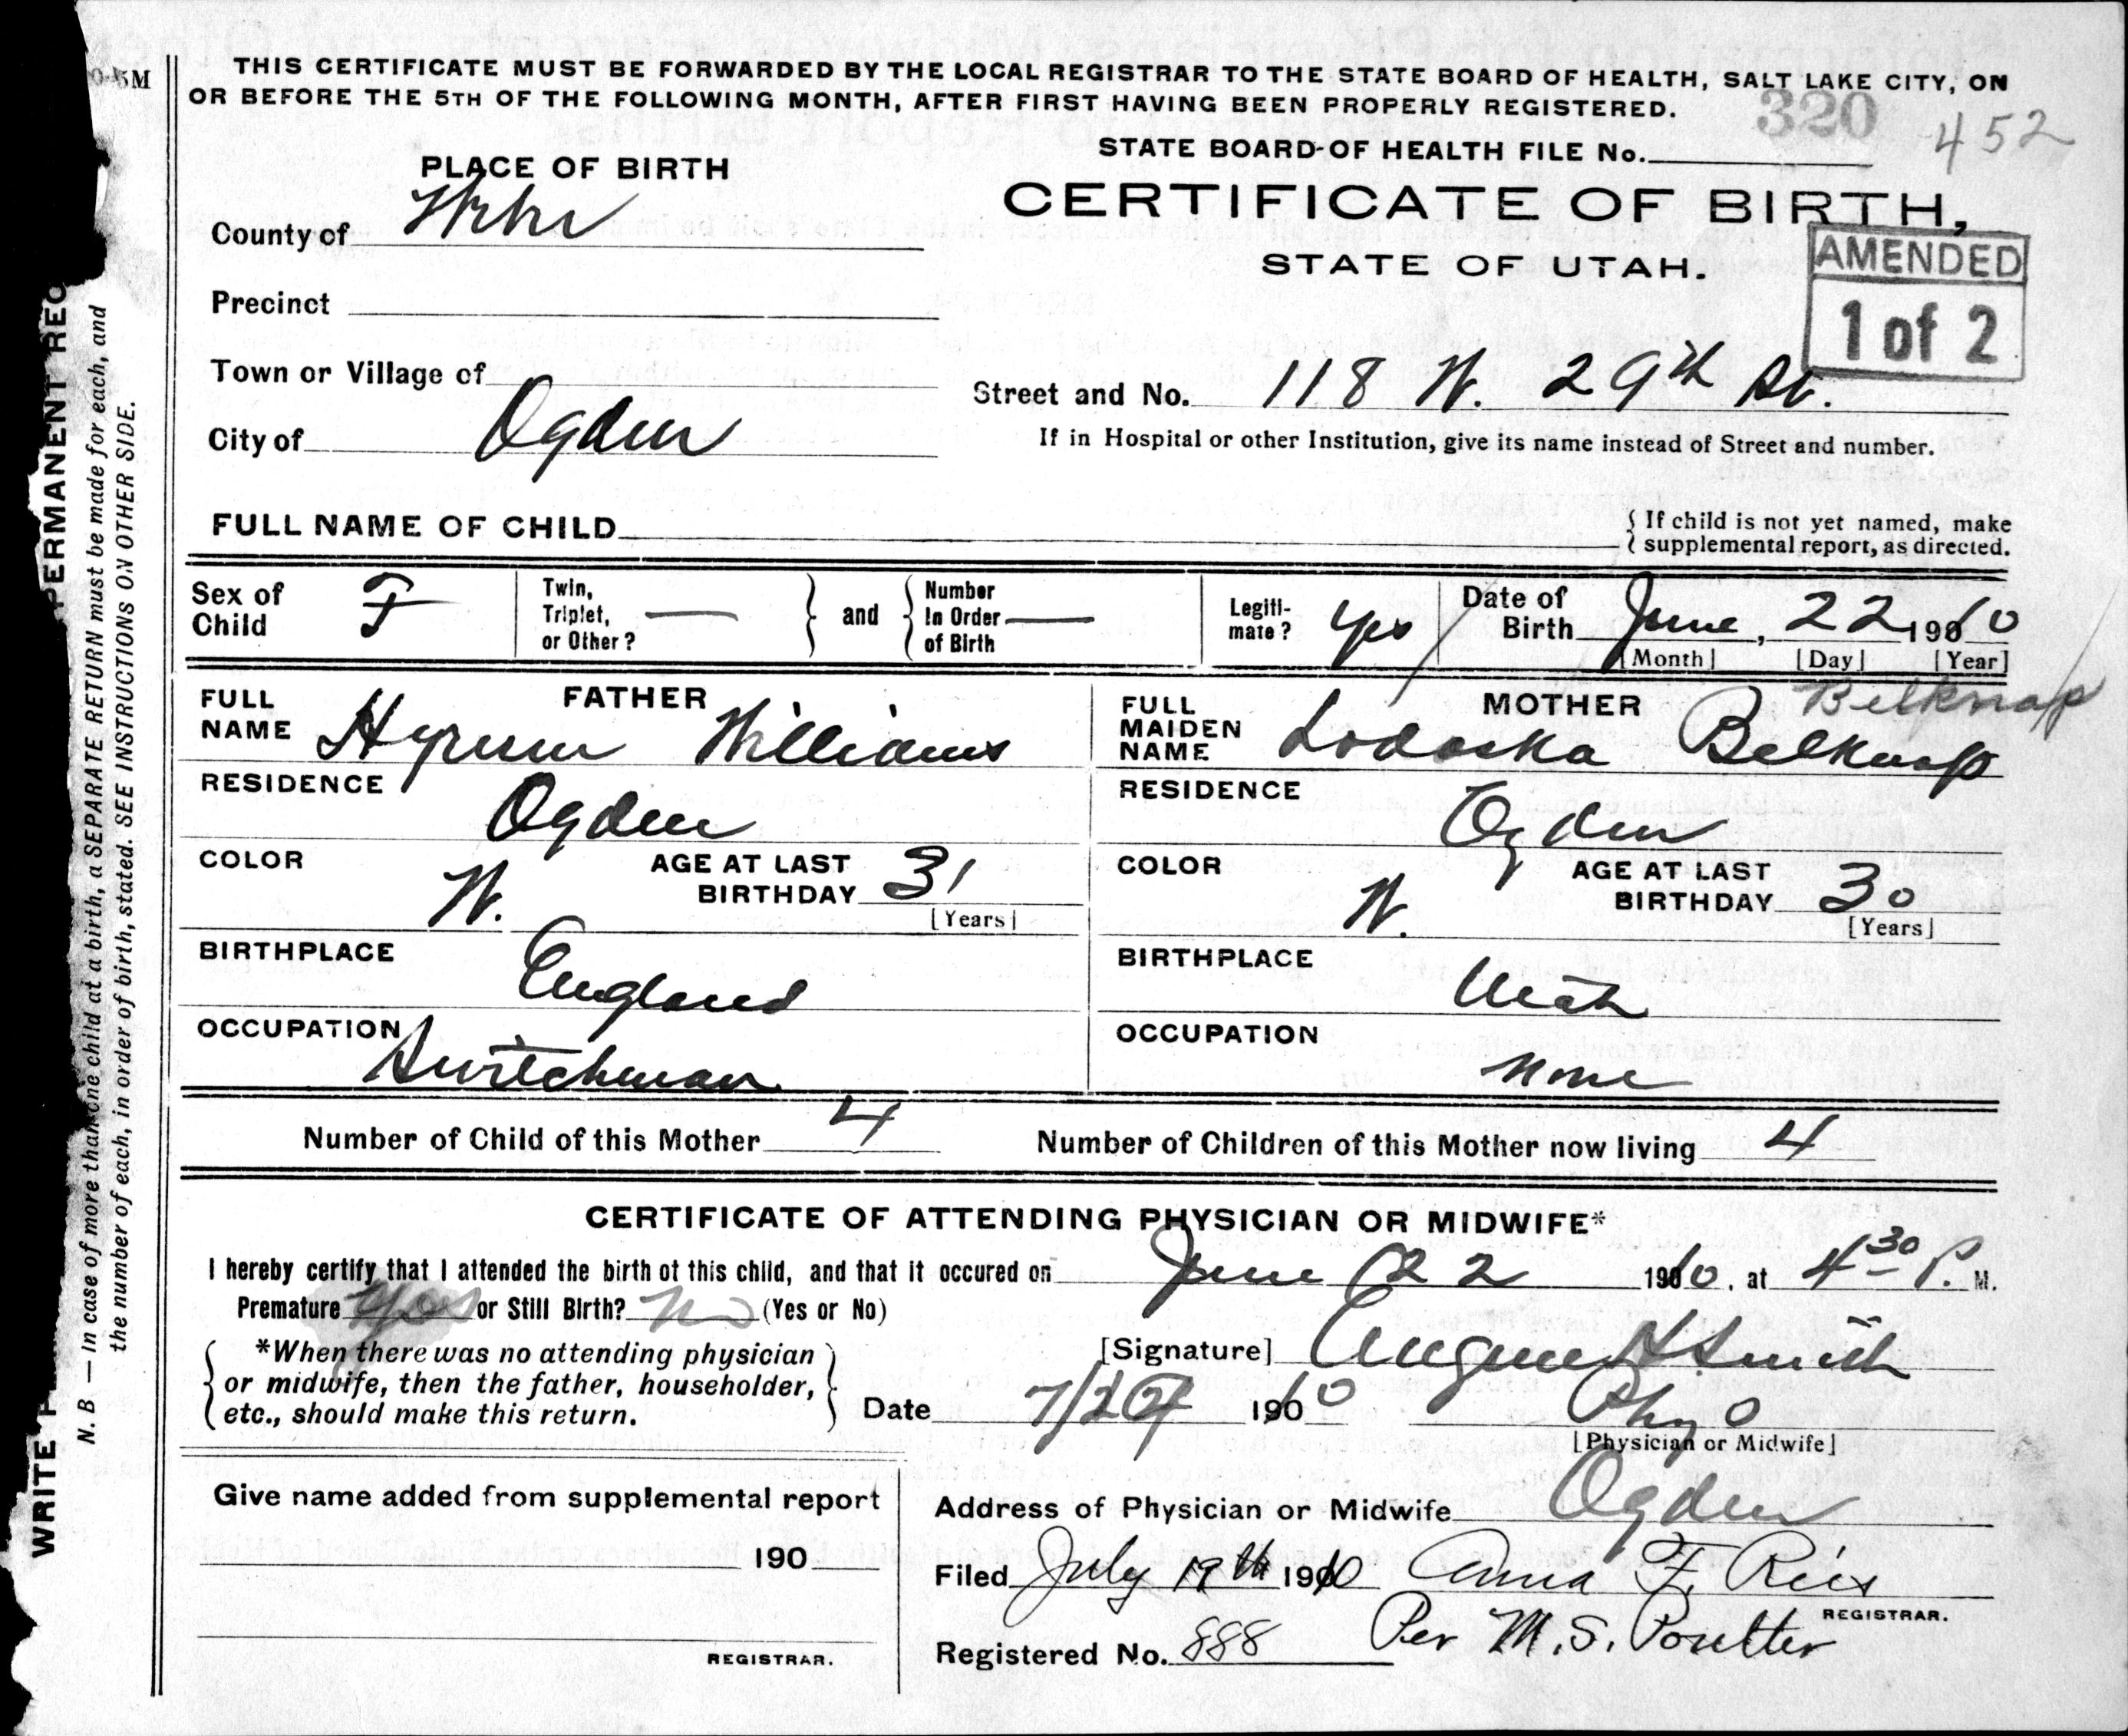 0-5M
THIS CERTIFICATE MUST BE FORWARDED BY THE LOCAL REGISTRAR TO THE STATE BOARD OF HEALTH, SALT LAKE CITY, ON
OR BEFORE THE 5TH OF THE FOLLOWING MONTH, AFTER FIRST HAVING BEEN PROPERLY REGISTERED.
320 452
STATE BOARD OF HEALTH FILE No.
PLACE OF BIRTH
CERTIFICATE OF BIRTH,
STATE OF UTAH.
AMENDED
1 of 2
County of Weber
Precinct
Town or Village of
Street and No. 118 W. 29th St.
City of Ogden
If in Hospital or other Institution, give its name instead of Street and number.
FULL NAME OF CHILD
If child is not yet named, make
supplemental report, as directed.
Sex of Child F
Twin, Triplet, or Other? —
and
Number In Order of Birth —
Legiti-mate? yes
Date of Birth June, 22 1910
[Month] [Day] [Year]
FATHER
FULL NAME Hyrum Williams
RESIDENCE Ogden
COLOR W.
AGE AT LAST BIRTHDAY 31
[Years]
BIRTHPLACE England
OCCUPATION Switchman
MOTHER
Belknap
FULL MAIDEN NAME Lodoska Belknap
RESIDENCE Ogden
COLOR W.
AGE AT LAST BIRTHDAY 30
[Years]
BIRTHPLACE Utah
OCCUPATION None
Number of Child of this Mother 4
Number of Children of this Mother now living 4
CERTIFICATE OF ATTENDING PHYSICIAN OR MIDWIFE*
I hereby certify that I attended the birth of this child, and that it occured on June 22 1910, at 4 30 P. M.
Premature yes or Still Birth? no (Yes or No)
*When there was no attending physician
or midwife, then the father, householder,
etc., should make this return.
[Signature] Eugene H Smith
Date 7/2 1910
[Physician or Midwife]
Give name added from supplemental report
190
REGISTRAR.
Address of Physician or Midwife Ogden
Filed July 19th 1910 Anna F. Ries
REGISTRAR.
Registered No. 888 Per M. S. Poulter
WRITE PERMANENT REC
N. B — In case of more than one child at a birth, a SEPARATE RETURN must be made for each, and
the number of each, in order of birth, stated. SEE INSTRUCTIONS ON OTHER SIDE.